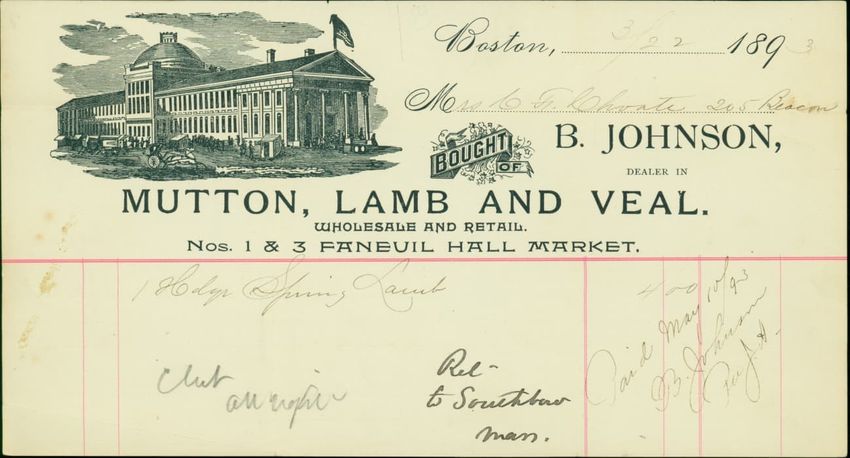 Boston, 3/22 1893
Mrs C F Choate 205 Beacon
BOUGHT OF
B. JOHNSON,
DEALER IN
MUTTON, LAMB AND VEAL.
WHOLESALE AND RETAIL.
Nos. 1 & 3 FANEUIL HALL MARKET.
1 Hdqr Spring Lamb 400
Paid May 10/93
B. Johnson
Per
all right
Rel-
to Southboro
Mass.